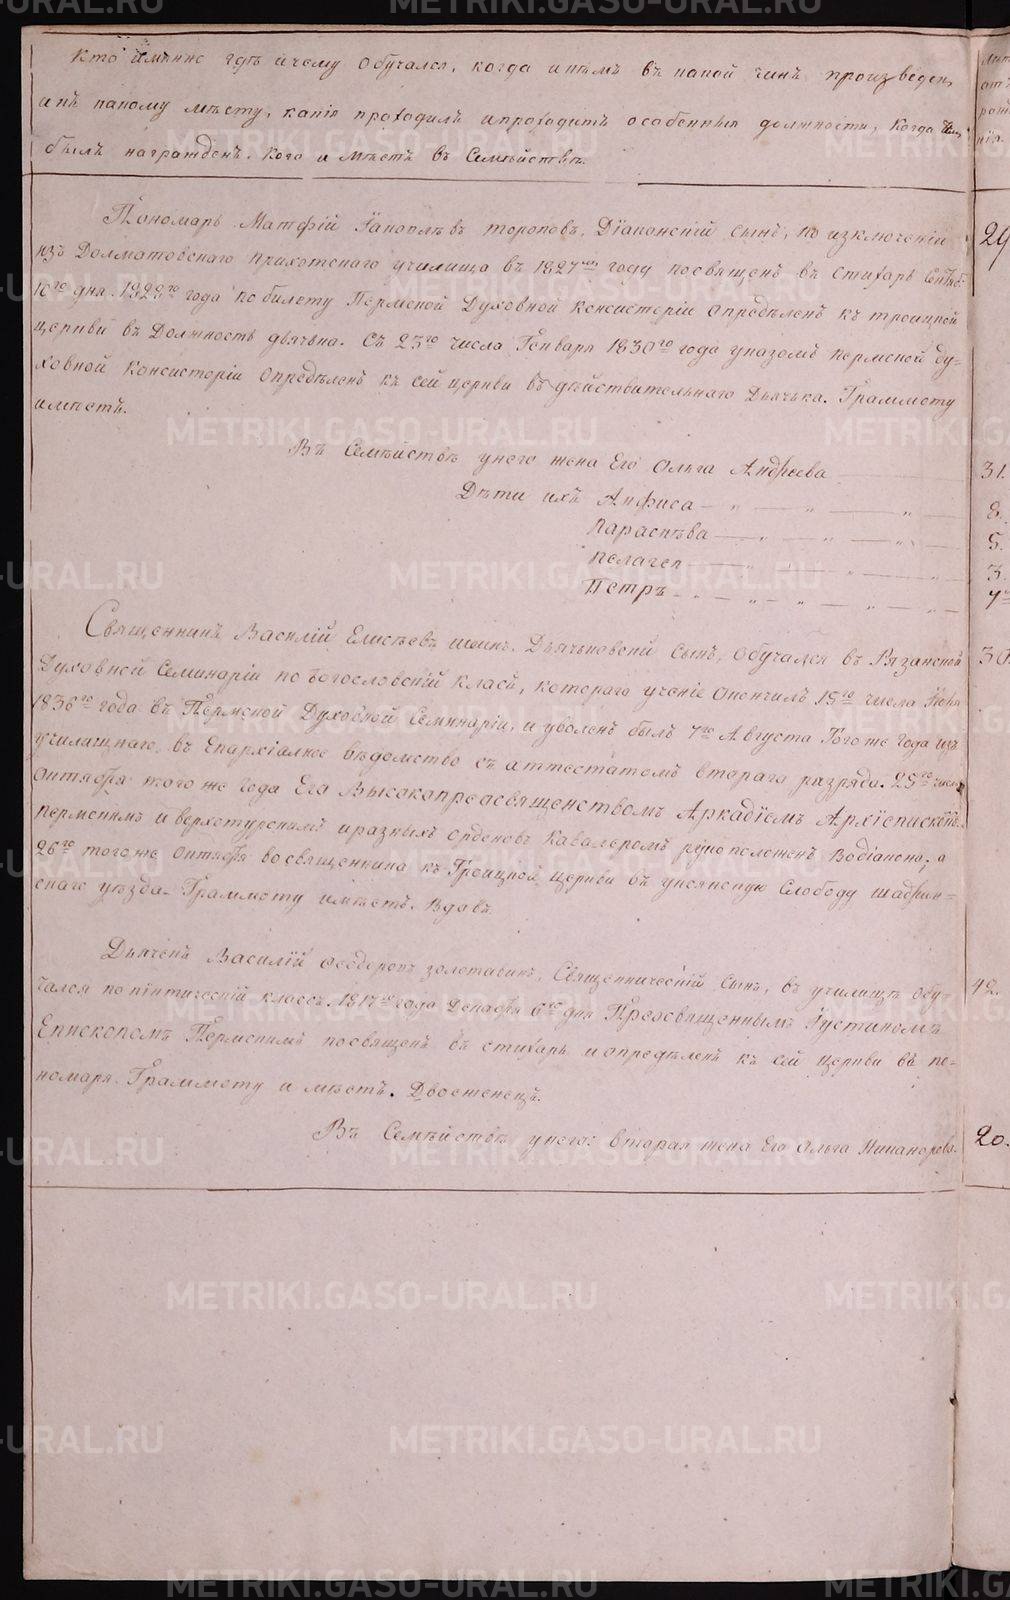 Кто имянно гдѣ и чему обучался, когда и кѣмъ въ какой чинъ произведенъ
и къ какому мѣсту, какія проходилъ и проходитъ особенныя должности, когда чѣмъ
былъ награжденъ. Кого имѣетъ въ Семѣйствѣ.
Пономарь Матфій Іаковлѣвъ Тороповъ, Діаконскій сынъ, по изключеніи
изъ Долматовскаго приходскаго училища въ 1827мъ году посвященъ въ стихарь Септяб:
10го дня. 1828го года по билету Пермской Духовной Консисторіи опредѣленъ къ троицкой
церкви въ Должность дьячька. Съ 23го числа Генваря 1830го года указомъ пермской ду-
ховной Консисторіи опредѣленъ къ сей церкви въ дѣйствительнаго Дьячька. Граммоту
имѣетъ.
Въ Семѣйствѣ у него жена Его Ольга Андреева
31.
Дѣти ихъ Анфиса
8.
Параскѣва
5.
Пелагея
3.
Петръ
Священникъ Василій Елисѣевъ Дьячьковскій сынъ, обучался въ Рязанской
30.
Духовной Семинаріи по богословскій класъ, котораго ученіе окончилъ 15го числа Іюля
1836го года въ Пермской Духовной Семинаріи, и уволенъ былъ 7го Августа того же года изъ
училищнаго въ Епархіалное вѣдомство съ аттестатомъ втораго разряда. 25го числа
октября того же года Его Высокопреосвященствомъ Аркадіемъ Архіепископ.
пермскимъ и верхотурскимъ и разныхъ орденовъ Кавалеромъ рукоположенъ во діакона, а
26го того же октября во священника къ Троицкой церкви въ уксянскую Слободу шадрин-
скаго уѣзда. Граммоту имѣетъ. Вдовъ.
Дьячекъ Василій Феодоровъ золотавинъ, Священническій Сынъ, въ училищѣ обу-
42.
чался по піитическій классъ. 1817го года Декабря 6го дня Преосвященнымъ Іустиномъ
Епископомъ Пермскимъ посвященъ въ стихарь и опредѣленъ къ сей церкви въ по-
номаря. Граммоту имѣетъ. Двоеженецъ.
Въ Семѣйствѣ у него: вторая жена Его Ольга Никанорова.
20.
METRIKI.GASO-URAL.RU